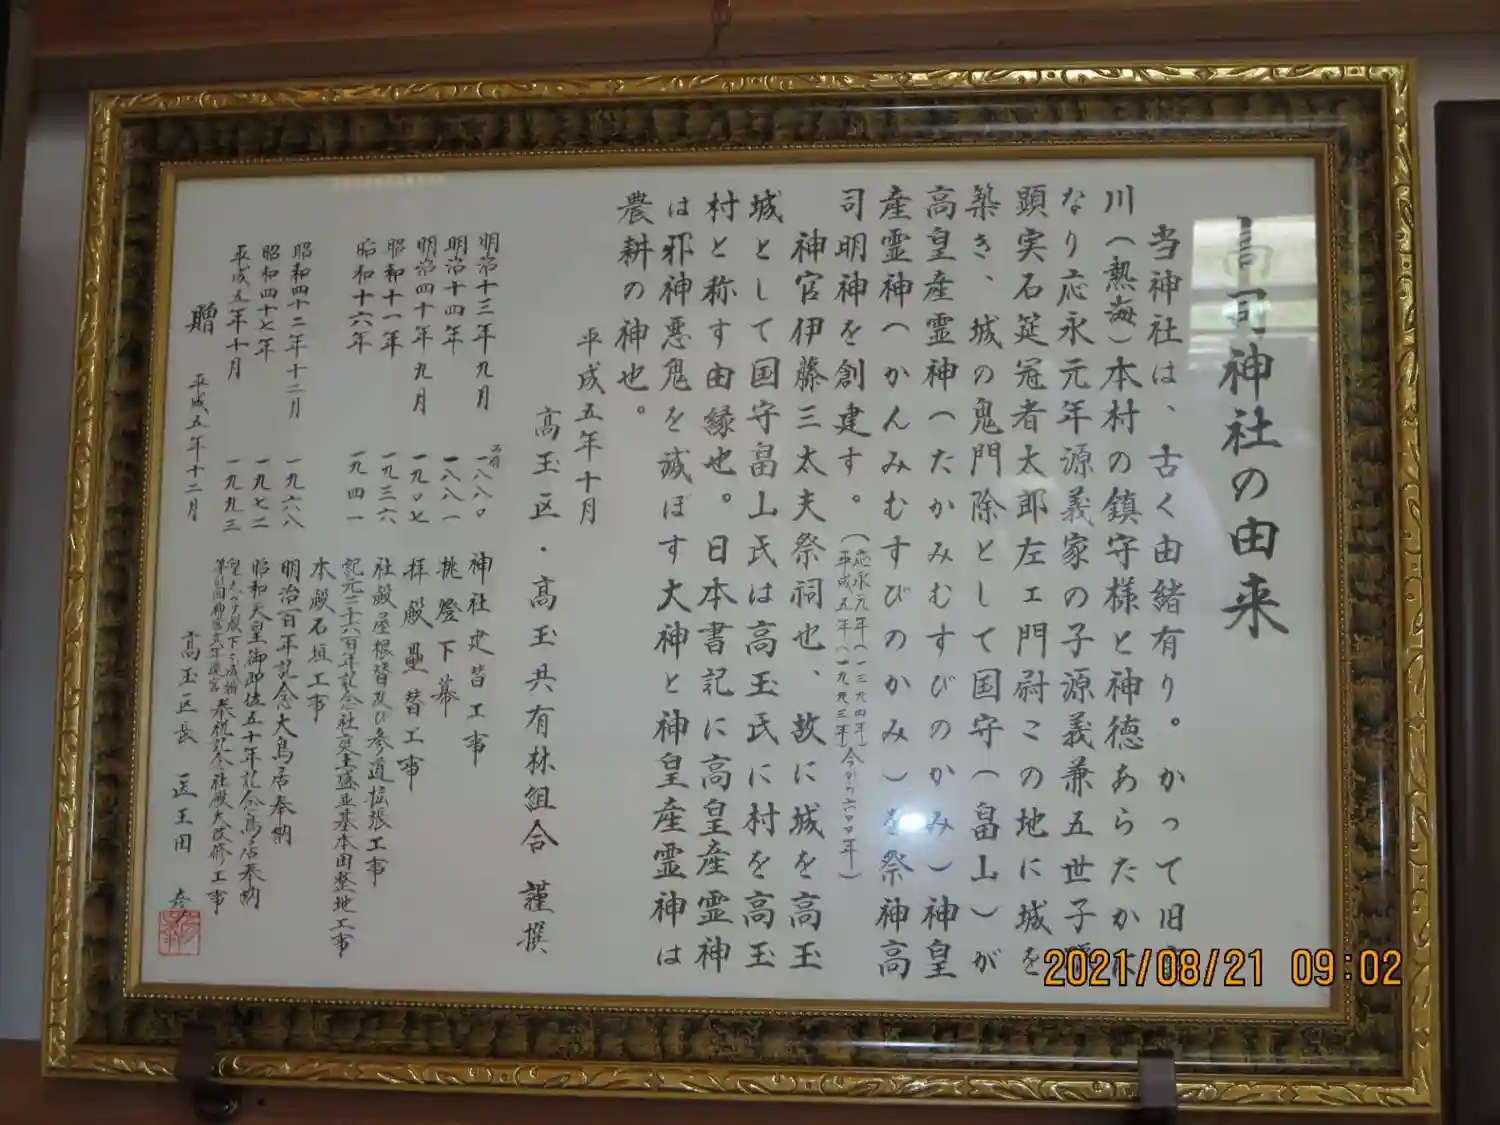 高司神社の由来
当神社は、古く由緒有り。かって旧
川(熱海)本村の鎮守様と神徳あらたか
なり応永元年源義家の子源義兼五世子
顕実石筵冠者太郎左エ門尉この地に城を
築き、城の鬼門除として国守(畠山)が
高皇産霊神(たかみむすびのかみ)神皇
産霊神(かんみむすびのかみ)を祭神高
司明神を創建す。(応永元年(一三九四年)平成五年(一九九三年)今から六〇〇年)
神官伊藤三太夫祭祠也、故に城を高玉
城として国守畠山氏は高玉氏に村を高玉
村と称す由縁也。日本書記に高皇産霊神
は邪神悪鬼を誠ぼす大神と神皇産霊神は
農耕の神也。
平成五年十月
高玉区・高玉共有林組合 謹撰
明治十三年九月 一八八〇 神社建替工事
明治十四年 一八八一 桃燈下幕
明治四十年九月 一九〇七 拝殿畳替工事
昭和十一年 一九三六 社殿屋根替及び参道拡張工事
昭和十六年 一九四一 記元二千六百年記念社寅土盛並基本田整地工事
本殿石垣工事
昭和四十二年十二月 一九六八 明治百年記念大鳥居奉納
昭和四十七年 一九七二 昭和天皇御即位五十年記念鳥居奉納
平成五年十月 一九九三 皇太子殿下ご成婚 第61回神宮式年遷宮 奉祝記念社殿大改修工事
贈 平成五年十二月 高玉区長
2021/08/21 09:02